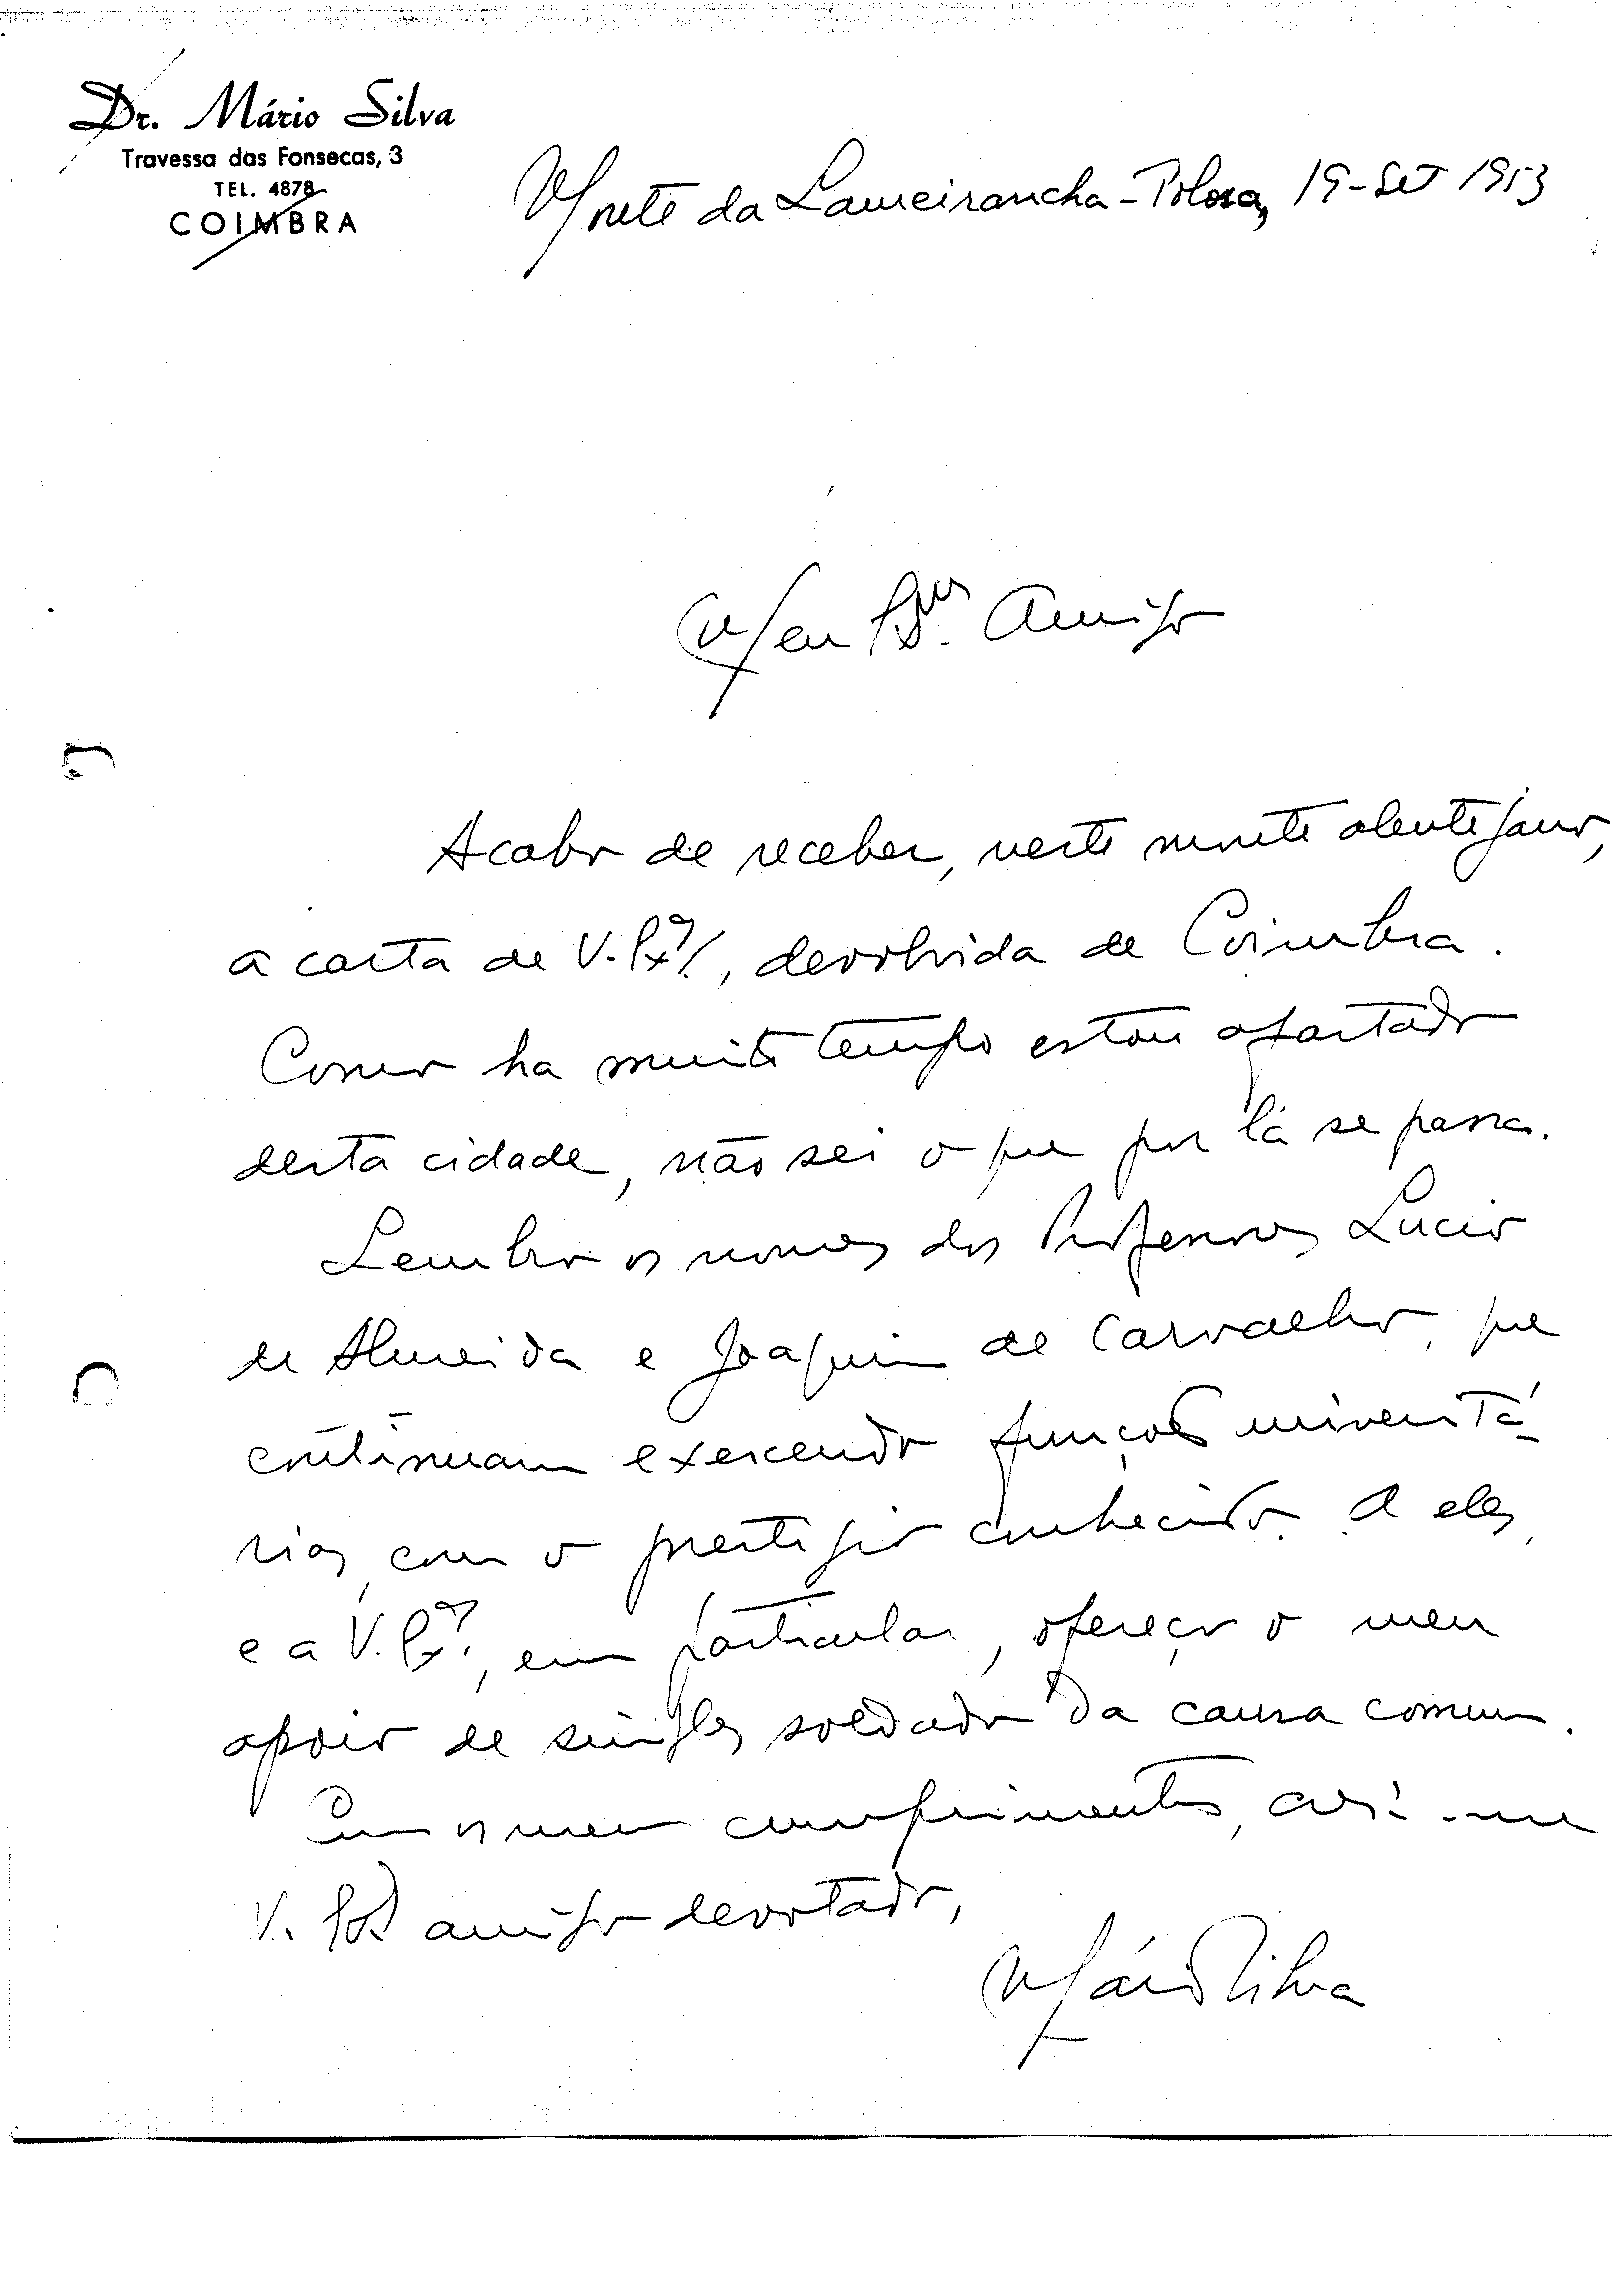 Dr. Mário Silva
Travessa das Fonsecas, 3
TEL. 4878
COIMBRA
Monte da Lameirancha - 19-Set 1953
Meu Amigo
Acabo de receber, neste monte alentejano,
a carta de V. Exª., devolvida de Coimbra.
Como ha muito tempo estou afastado
desta cidade, não sei o que por lá se passa.
Lembro os nomes dos Professores Lucio
de Almeida e Joaquim de Carvalho, que
continuam exercendo funções universitá-
rias, com o prestigio conhecido. A eles,
e a V. Exª., em particular, ofereço o meu
apoio de simples soldado da causa comum.
Com os meus cumprimentos, creia-me
V. amigo devotado,
Mário Silva